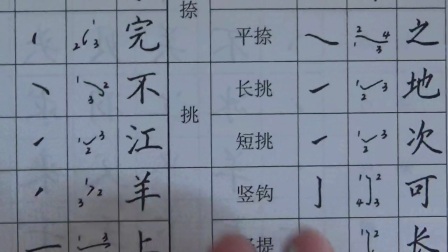 完
捺
平捺
之
不
挑
长挑
地
江
短挑
次
羊
竖钩
可
上
提
长